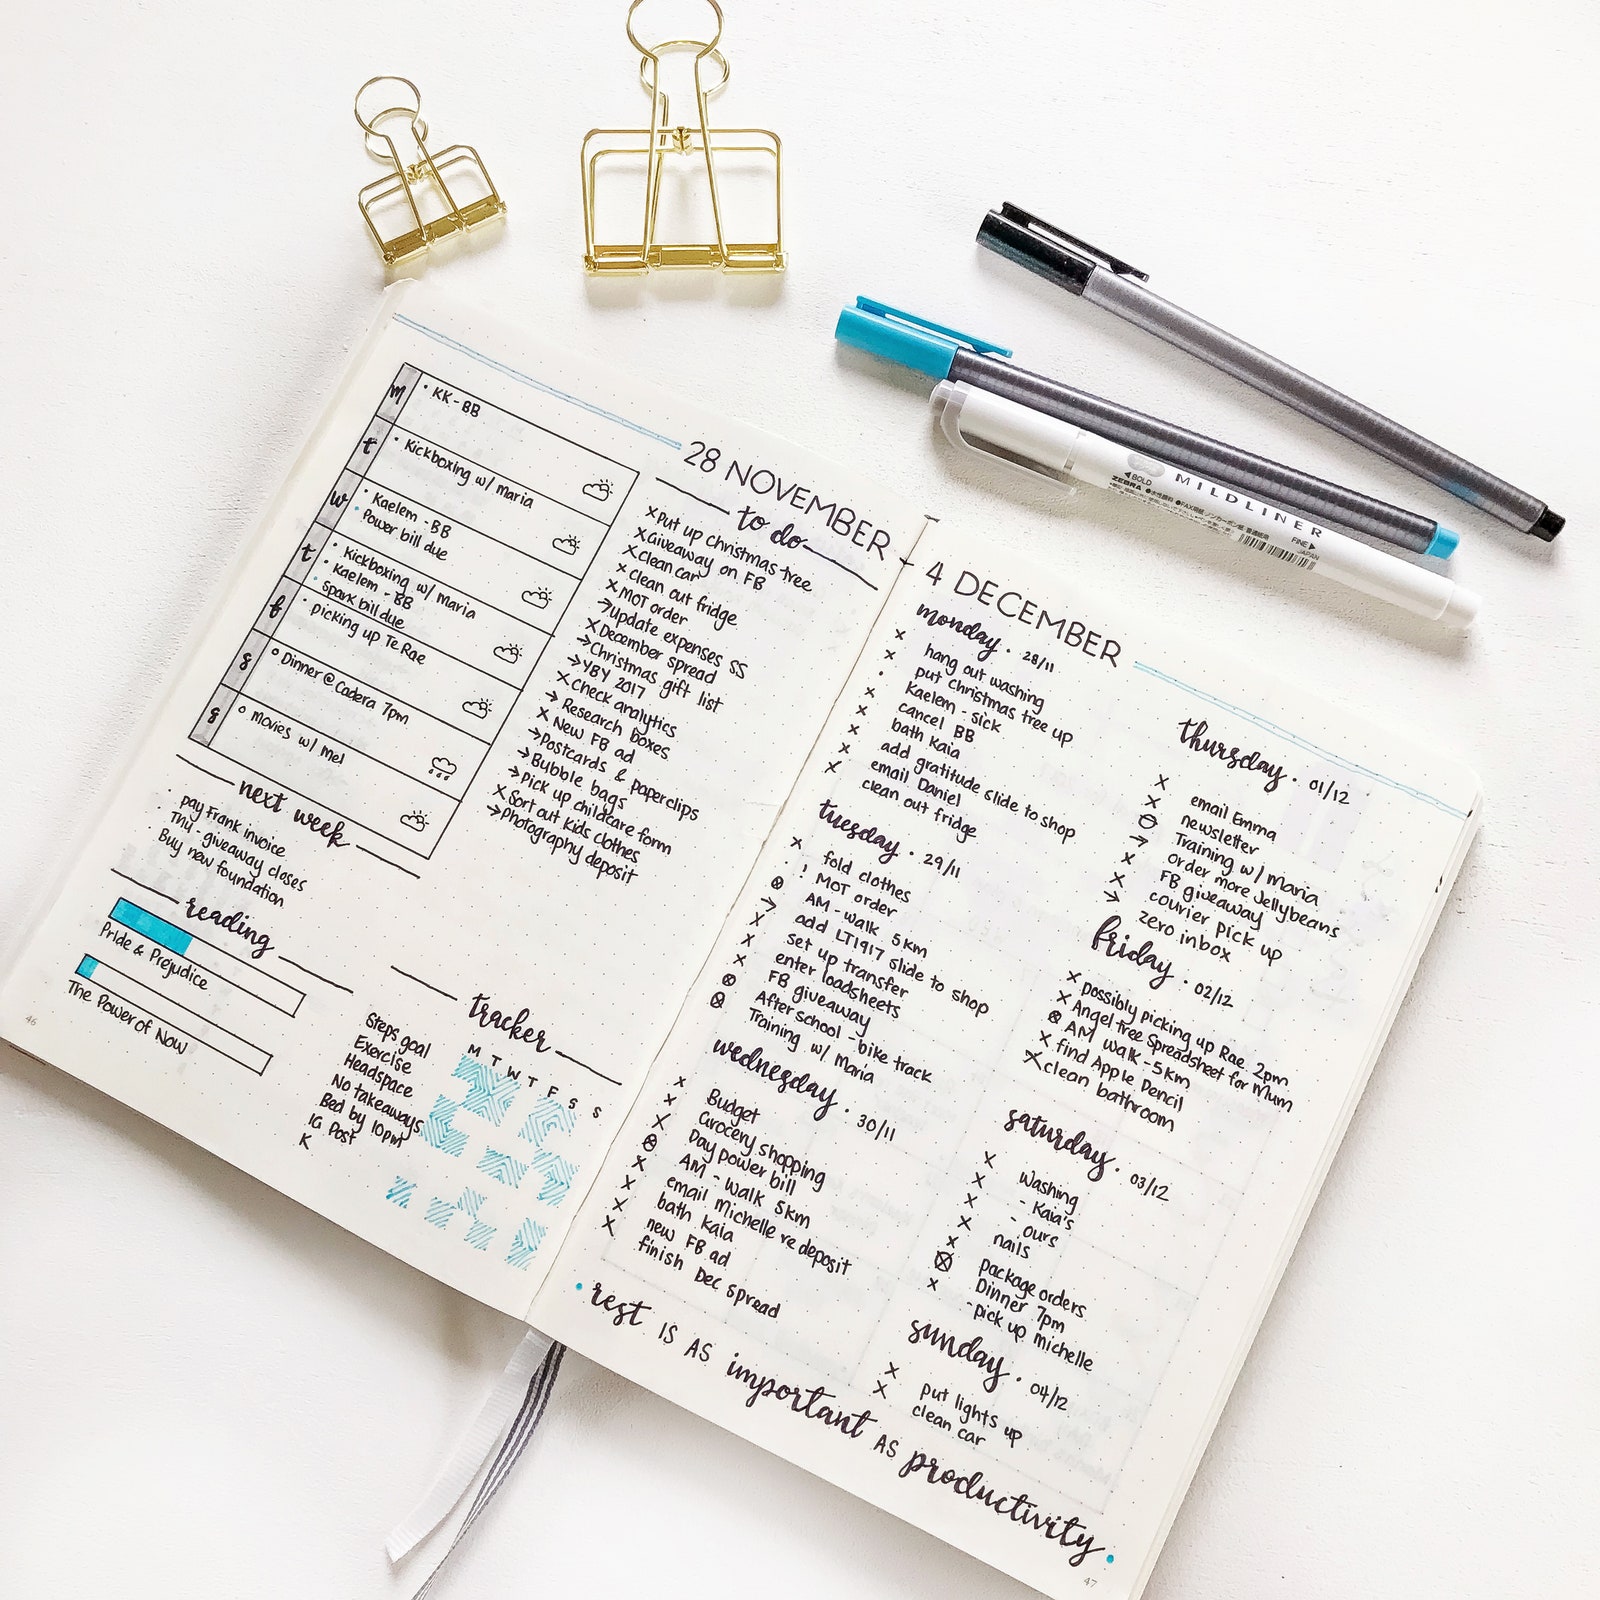 28 NOVEMBER
m
• KK - BB
t
• Kickboxing w/ maria
w
• Kaelem - BB
• Power bill due
t
• Kickboxing w/ maria
• Kaelem - BB
• spark bill due
f
• picking up Te Rae
s
o Dinner @ Cadera 7pm
s
o movies w/ mel
to do
x Put up christmas tree
x Giveaway on FB
x Clean car
x Clean out fridge
x MOT order
→ Update expenses SS
x December spread
→ Christmas gift list
→ YBY 2017
x Check analytics
→ Research boxes
x New FB ad
→ Postcards & paperclips
→ Bubble bags
→ Pick up childcare form
x Sort out kids clothes
→ Photography deposit
next week
· pay Frank invoice
· Thu - giveaway closes
· Buy new foundation
reading
Pride & Prejudice
The Power of Now
tracker
M T W T F S S
Steps goal
Exercise
Headspace
No takeaways
Bed by 10pm
IG Post
K
46
4 DECEMBER
monday · 28/11
x hang out washing
x put Christmas tree up
· Kaelem - sick
x cancel BB
x bath Kaia
x add gratitude slide to shop
x email Daniel
x clean out fridge
tuesday · 29/11
x fold clothes
· ! MOT order
⊗ AM - walk 5km
→ add LT1917 slide to shop
x set up transfer
x enter loadsheets
x FB giveaway
⊗ After school - bike track
⊗ Training w/ Maria
wednesday · 30/11
x Budget
x Grocery shopping
x Pay power bill
⊗ AM - walk 5km
x email michelle re deposit
x bath Kaia
x new FB ad
x finish Dec spread
thursday · 01/12
x email Emma
x newsletter
⊖ Training w/ maria
→ order more jellybeans
x FB giveaway
x courier pick up
→ zero inbox
friday · 02/12
x possibly picking up Rae 2pm
x Angel tree Spreadsheet for Mum
⊗ AM walk - 5km
x find Apple Pencil
x clean bathroom
saturday · 03/12
x washing
x - Kaia's
x - ours
x nails
x package orders
⊗ Dinner 7pm
x - pick up michelle
sunday · 04/12
x put lights up
x clean car
• rest IS AS important AS productivity •
47
◀BOLD
ZEBRA
MILDLINER
FINE▶
JAPAN